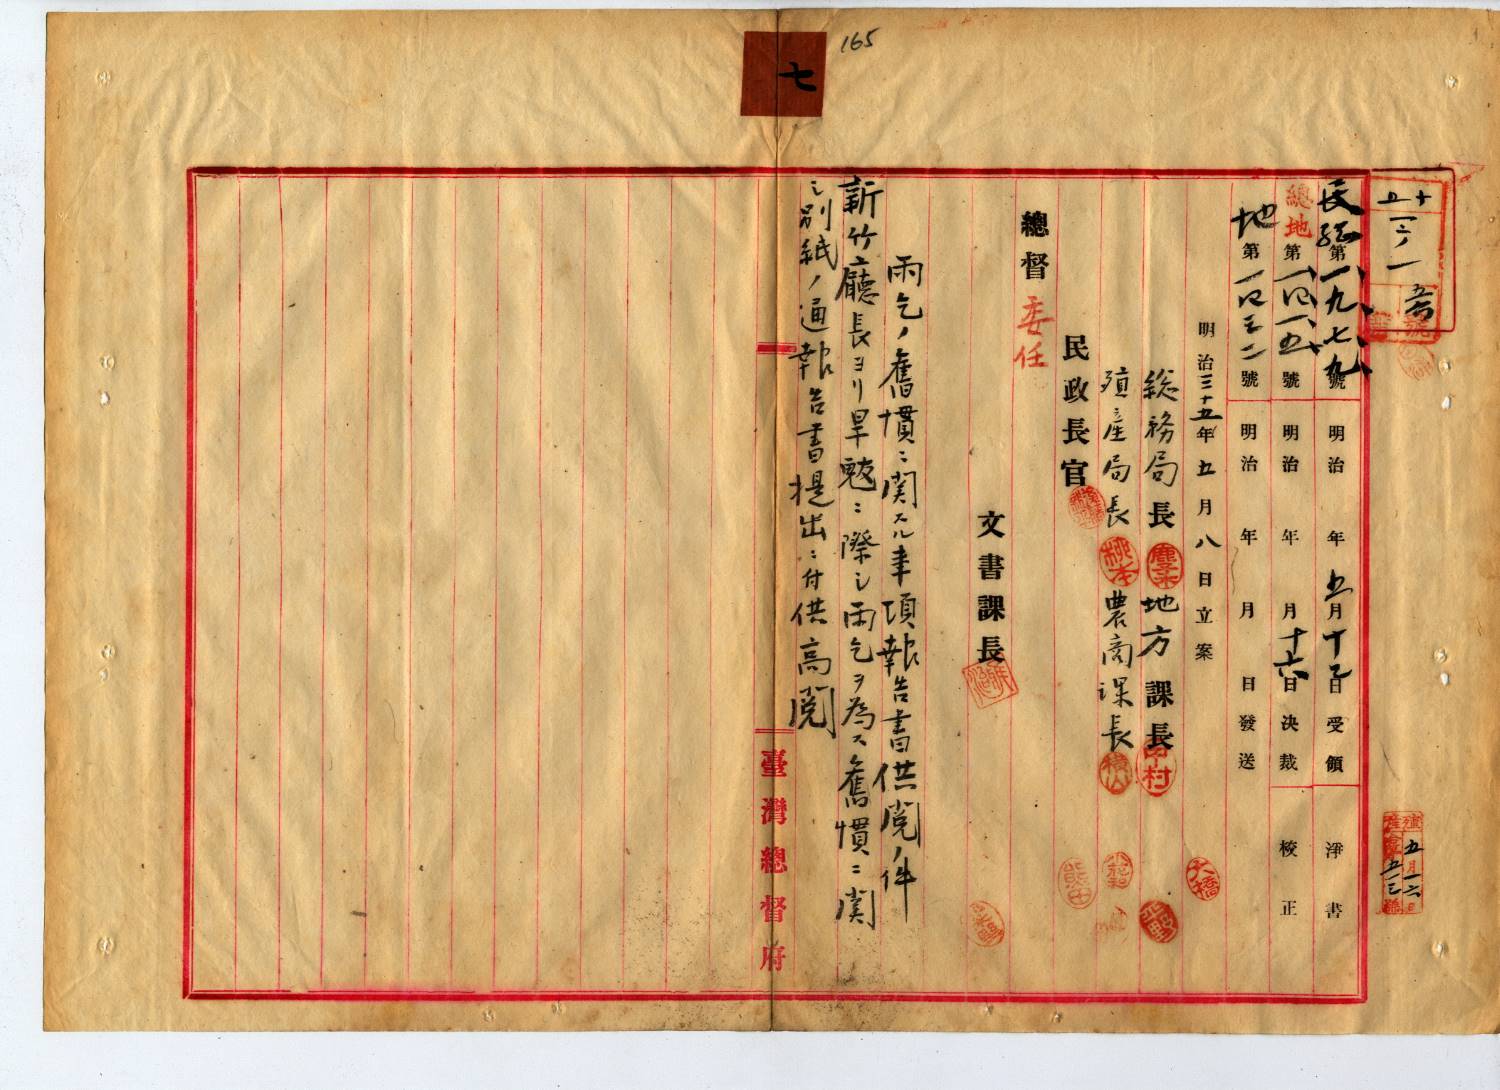 165
七
民総第一九七九號 明治 年五月十三日受領 淨書
總地第一四一五號 明治 年 月十六日決裁 校正
地第一四三二號 明治 年 月 日發送
明治三十五年五月八日立案
総務局長 地方課長 中村
殖產局長 農商課長
大橋
民政長官
總督 委任
文書課長
雨乞ノ舊慣ニ関スル事項報告書供閲ノ件
新竹廳長ヨリ旱魃ニ際シ雨乞ヲ為ス舊慣ニ関
シ別紙ノ通報告書提出ニ付供高閲
臺灣總督府
殖產 五月一六日